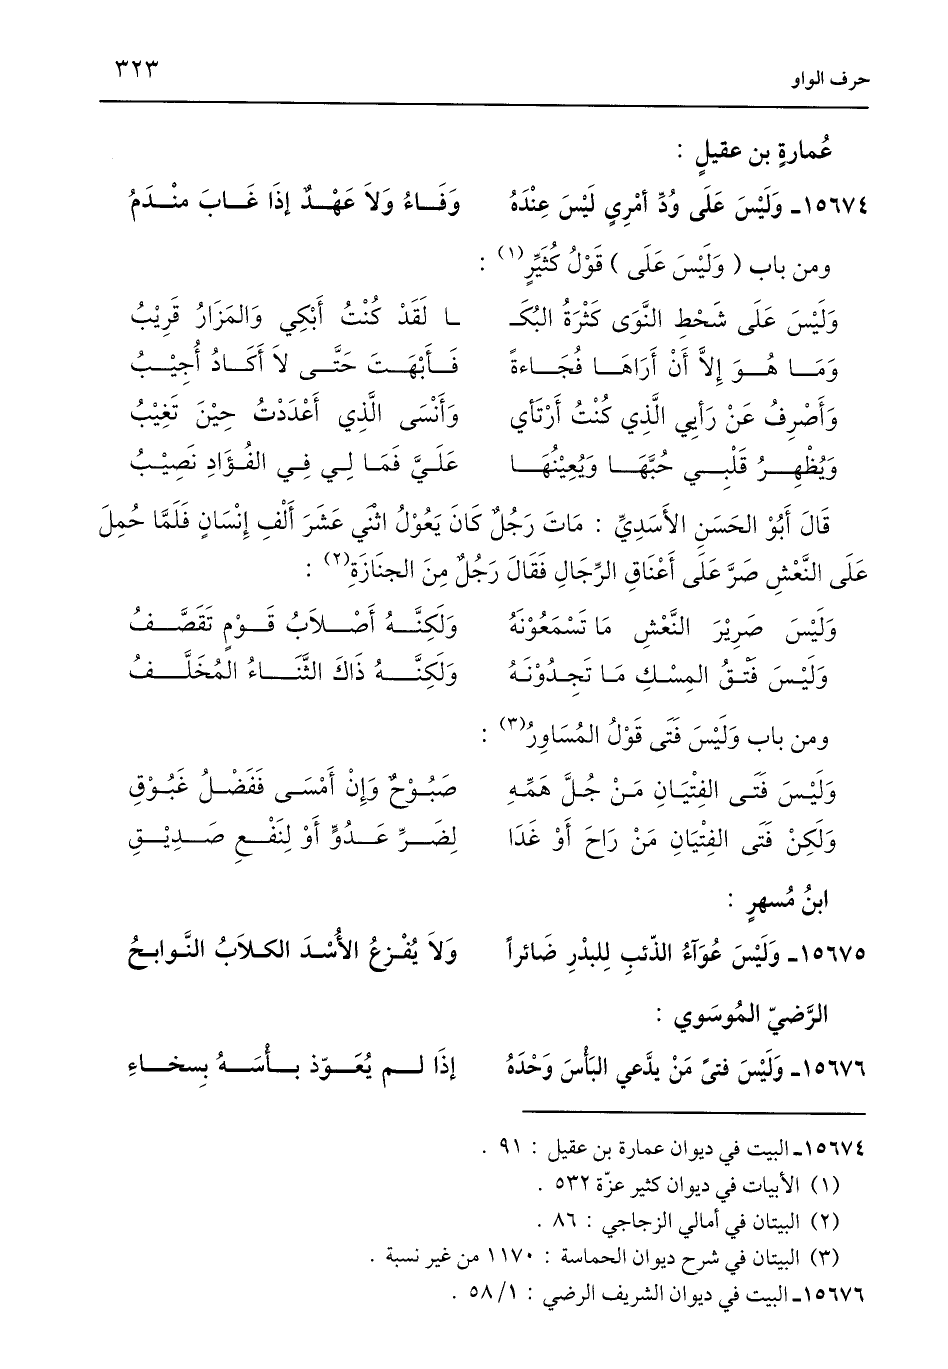 حرف الواو ٣٢٣
عُمارةٍ بن عقيلٍ :
١٥٦٧٤ـ وَلَيْسَ عَلَى وُدِّ أمْرِي لَيْسَ عِنْدَهُ وَفَـاءُ ولاَ عَهْـدٌ إذَا غَـابَ منْـدَمُ
ومن باب ( وَلَيْسَ عَلَى ) قَوْلُ كُثَيِّرٍ(١) :
وَلَيْسَ عَلَى شَحْطِ النَّوَى كَثرَةُ البُكَـ ـا لَقَدْ كُنْتُ أَبْكِي وَالمَزَارُ قَرِيْبُ
وَمَـا هُـوَ إلاَّ أنْ أرَاهَـا فُجَـاءةً فَـأَبْهَـتَ حَتَّـى لاَ أكَـادُ أُجِيْـبُ
وَأصْرِفُ عَنْ رَأيي الَّذِي كُنْتُ أرْتَأي وَأنْسَى الَّذِي أعْدَدْتُ حِيْنَ تَغِيْبُ
وَيُظْهِـرُ قَلْبِـي حُبَّهَـا وَيُعِيْنُهَـا عَلَـيَّ فَمَـا لِـي فِـي الفُـؤَادِ نَصِيْـبُ
قَالَ أَبُوْ الحَسَنِ الأَسَدِيِّ : مَاتَ رَجُلٌ كَانَ يَعُوْلُ اثْنَي عَشَرَ أَلْفِ إِنْسَانٍ فَلَمَّا حُمِلَ
عَلَى النَّعْشِ صَرَّ عَلَى أعْنَاقِ الرِّجَالِ فَقَالَ رَجُلٌ مِنَ الجنَازَةِ(٢) :
وَلَيْسَ صَرِيْرَ النَّعْشِ مَا تَسْمَعُوْنَهُ وَلَكِنَّـهُ أصْـلاَبُ قَـوْمٍ تَقَصَّـفُ
وَلَيْـسَ فَتْـقُ المِسْـكِ مَـا تَجِـدُوْنَـهُ وَلَكِنَّـهُ ذَاكَ الثَّنَـاءُ المُخَلَّـفُ
ومن باب وَلَيْسَ فَتَى قَوْلُ المُسَاوِرُ(٣) :
وَلَيْـسَ فَتَـى الفِتْيَـانِ مَـنْ جُلَّ هَمِّـهِ صَبُـوْحٌ وَإنْ أمْسَـى فَفَضْـلُ غَبُـوْقِ
وَلَكِنْ فَتَى الفِتْيَانِ مَنْ رَاحَ أوْ غَدَا لِضَـرِّ عَـدُوٍّ أوْ لِنَفْـعِ صَـدِيْـقِ
ابنُ مُسهرٍ :
١٥٦٧٥ـ وَلَيْسَ عُوَآءُ الذّئبِ لِلبدْرِ ضَائراً وَلاَ يُفْـزعُ الأُسْـدَ الكـلاَبُ النَّـوابـحُ
الرَّضيّ المُوسَوي :
١٥٦٧٦ـ وَلَيْسَ فتىً مَنْ يدَّعي البَأْسَ وَحْدَهُ إذَا لـم يُعَـوّذ بـأسَـهُ بِسخَـاءِ
١٥٦٧٤ـ البيت في ديوان عمارة بن عقيل : ٩١ .
(١) الأبيات في ديوان كثير عزّة ٥٣٢ .
(٢) البيتان في أمالي الزجاجي : ٨٦ .
(٣) البيتان في شرح ديوان الحماسة : ١١٧٠ من غير نسبة .
١٥٦٧٦ـ البيت في ديوان الشريف الرضي : ١/ ٥٨ .